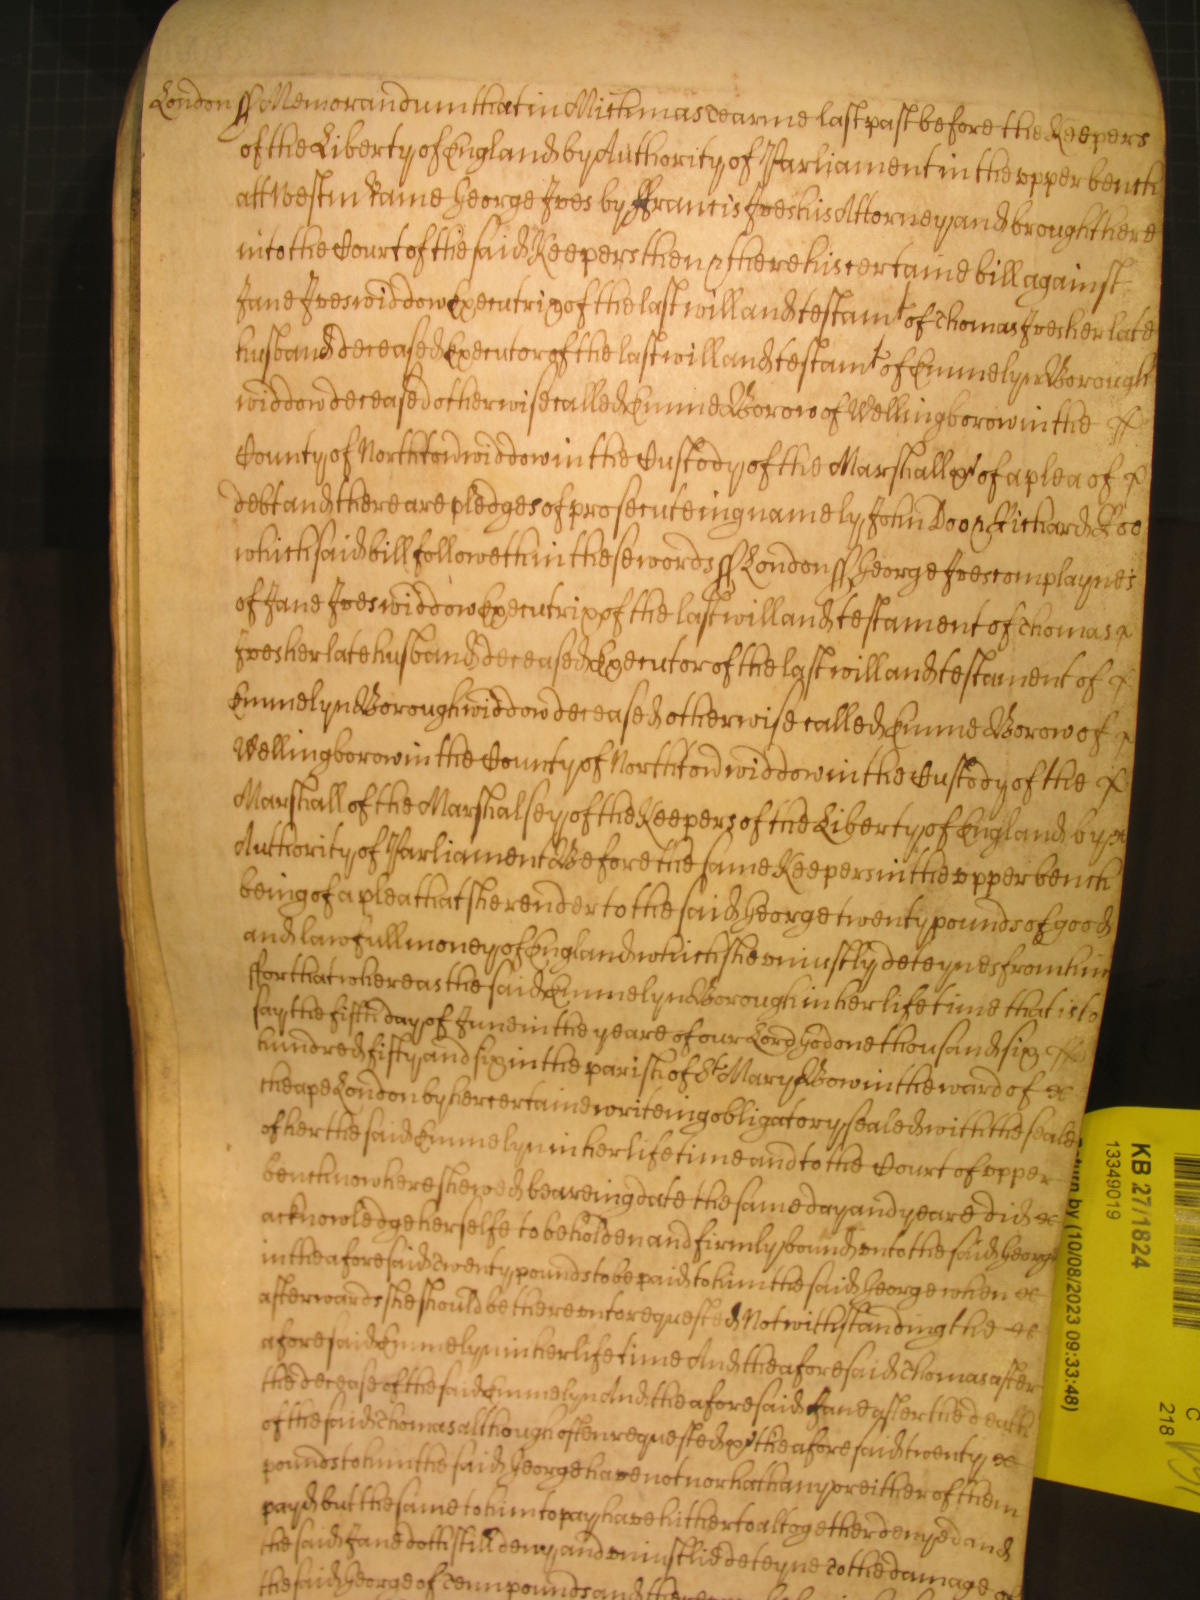 London ss Memorandum that in Michmas tearme last past before the Keepers
of the Liberty of England by Authority of Parliament in the upper bench
att Westm Came George Ives by Francis Ives his Attorney and brought here
into the Court of the said Keepers then & there his certaine bill against
Jane Ives widdow Executrix of the last will and testamt of Thomas Ives her late
husband deceased Executor of the last will and testamt of Emmelyn Borough
widdow deceased otherwise called Emme Borow of Wellingborow in the
County of Northton widdow in the Custody of the Marshall &c of a plea of
debt and there are pledges of prosecuteing namely John Doo & Richard Roo
which said bill followeth in these words ss London ss George Ives complaynes
of Jane Ives widdow Executrix of the last will and testament of Thomas
Ives her late husband deceased Executor of the last will and testament of
Emmelyn Borough widdow deceased otherwise called Emme Borow of
Wellingborow in the County of Northton widdow in the Custody of the
Marshall of the Marshalsey of the Keepers of the Liberty of England by
Authority of Parliament Before the same Keepers in the upper bench
being of a plea that she render to the said George twenty pounds of good
and lawfull money of England which she uniustly deteynes from him
ffor that whereas the said Emmelyn Borough in her life time that is to
say the fifth day of June in the yeare of our Lord God one thousand six
hundred fifty and six in the parish of St Mary Bow in the ward of
Cheape London by her certaine writeing obligatory sealed with the seale
of her the said Emmelyn in her life time and to the Court of upper
bench now here shewed beareing date the same day and yeare did
acknowledge herselfe to be holden and firmly bound unto the said George
in the aforesaid twenty pounds to be paid to him the said George when
afterwards she should be thereunto requested Notwithstanding the
aforesaid Emmelyn in her life time And the aforesaid Thomas after
the decease of the said Emmelyn And the aforesaid Jane after the death
of the said Thomas although often requested &c the aforesaid twenty
pounds to him the said George have not nor hath any or either of them
payd but the same to him to pay have hitherto altogether denyed and
the said Jane doth still deny and uniustlie deteyne To the damage of
the said George of Tenn pounds and
KB 27/1824
13349019
Return by (10/08/2023 09:33:48)
C
218